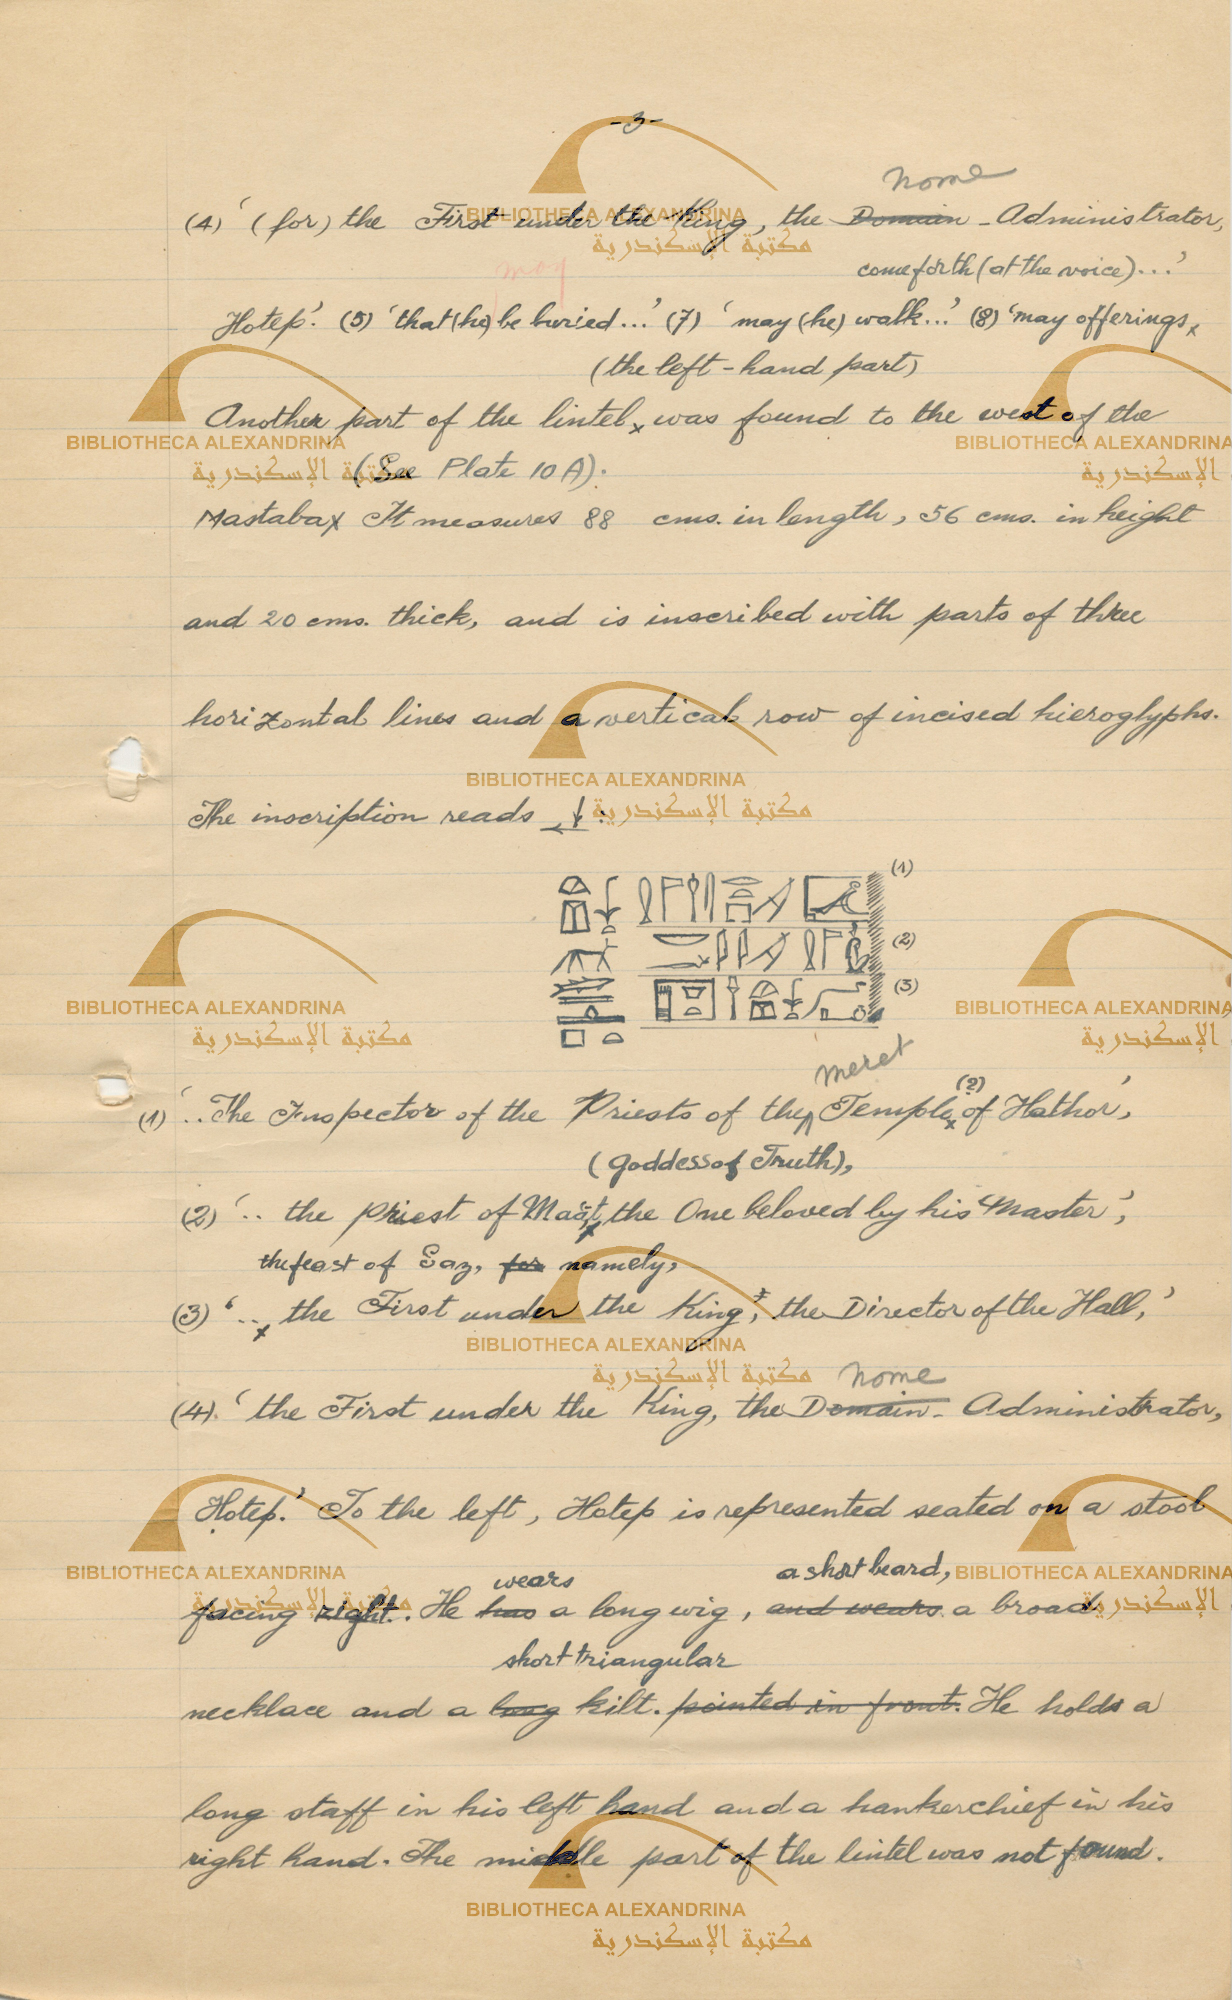 -3-
nome
(4) ‘(for) the First under the King, the Domain-Administrator,
may
come forth (at the voice)...’
Hotep’. (5) ‘that (he) be buried...’ (7) ‘may (he) walk...’ (8) ‘may offerings x
(the left-hand part)
Another part of the lintel x was found to the west of the
(See Plate 10 A).
Mastaba x It measures 88 cms. in length, 56 cms. in height
and 20 cms. thick, and is inscribed with parts of three
horizontal lines and a vertical row of incised hieroglyphs.
The inscription reads ↓
(1)
(2)
(3)
meret
(?)
(1) ‘..The Inspector of the Priests of the Temple x of Hathor’,
(goddess of Truth),
(2) ‘.. the priest of Maāt x the One beloved by his Master’,
the feast of Saz, for namely,
(3) ‘.. x the First under the King, the Director of the Hall,’
nome
(4). ‘the First under the King, the Domain-Administrator,
Hotep.’ To the left, Hotep is represented seated on a stool
wears a short beard,
facing right. He has a long wig, and wears a broad
short triangular
necklace and a long kilt. pointed in front. He holds a
long staff in his left hand and a hankerchief in his
right hand. The middle part of the lintel was not found.
BIBLIOTHECA ALEXANDRINA
مكتبة الإسكندرية